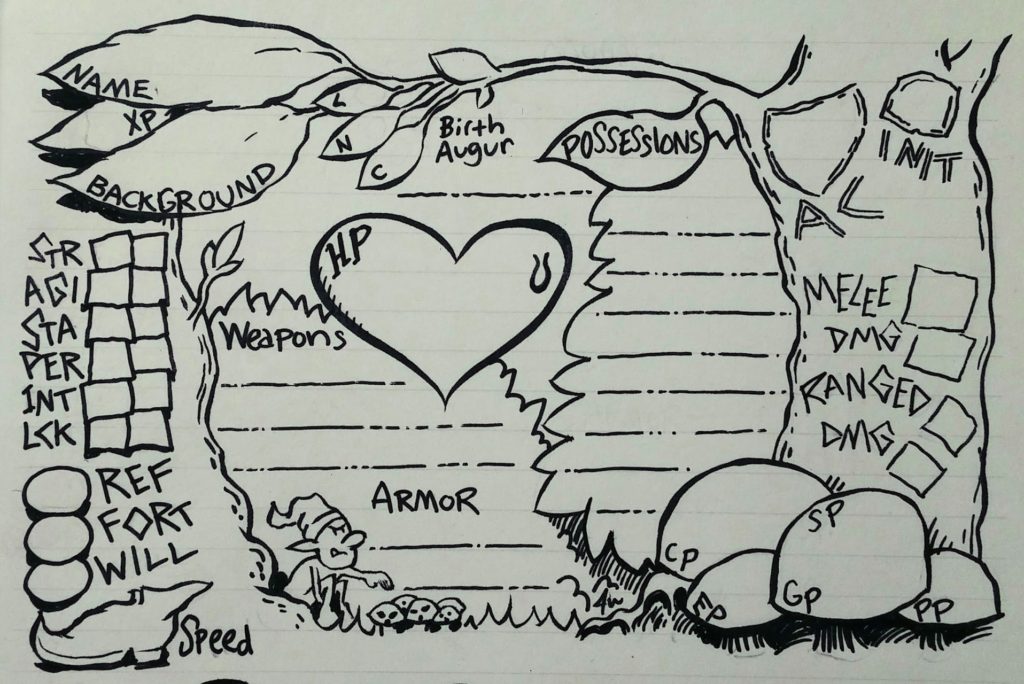 NAME
XP
BACKGROUND
L
N
C
Birth
Augur
POSSESSIONS
AC
INIT
STR
AGI
STA
PER
INT
LCK
HP
Weapons
MELEE
DMG
RANGED
DMG
REF
FORT
WILL
Speed
ARMOR
CP
SP
EP
GP
PP